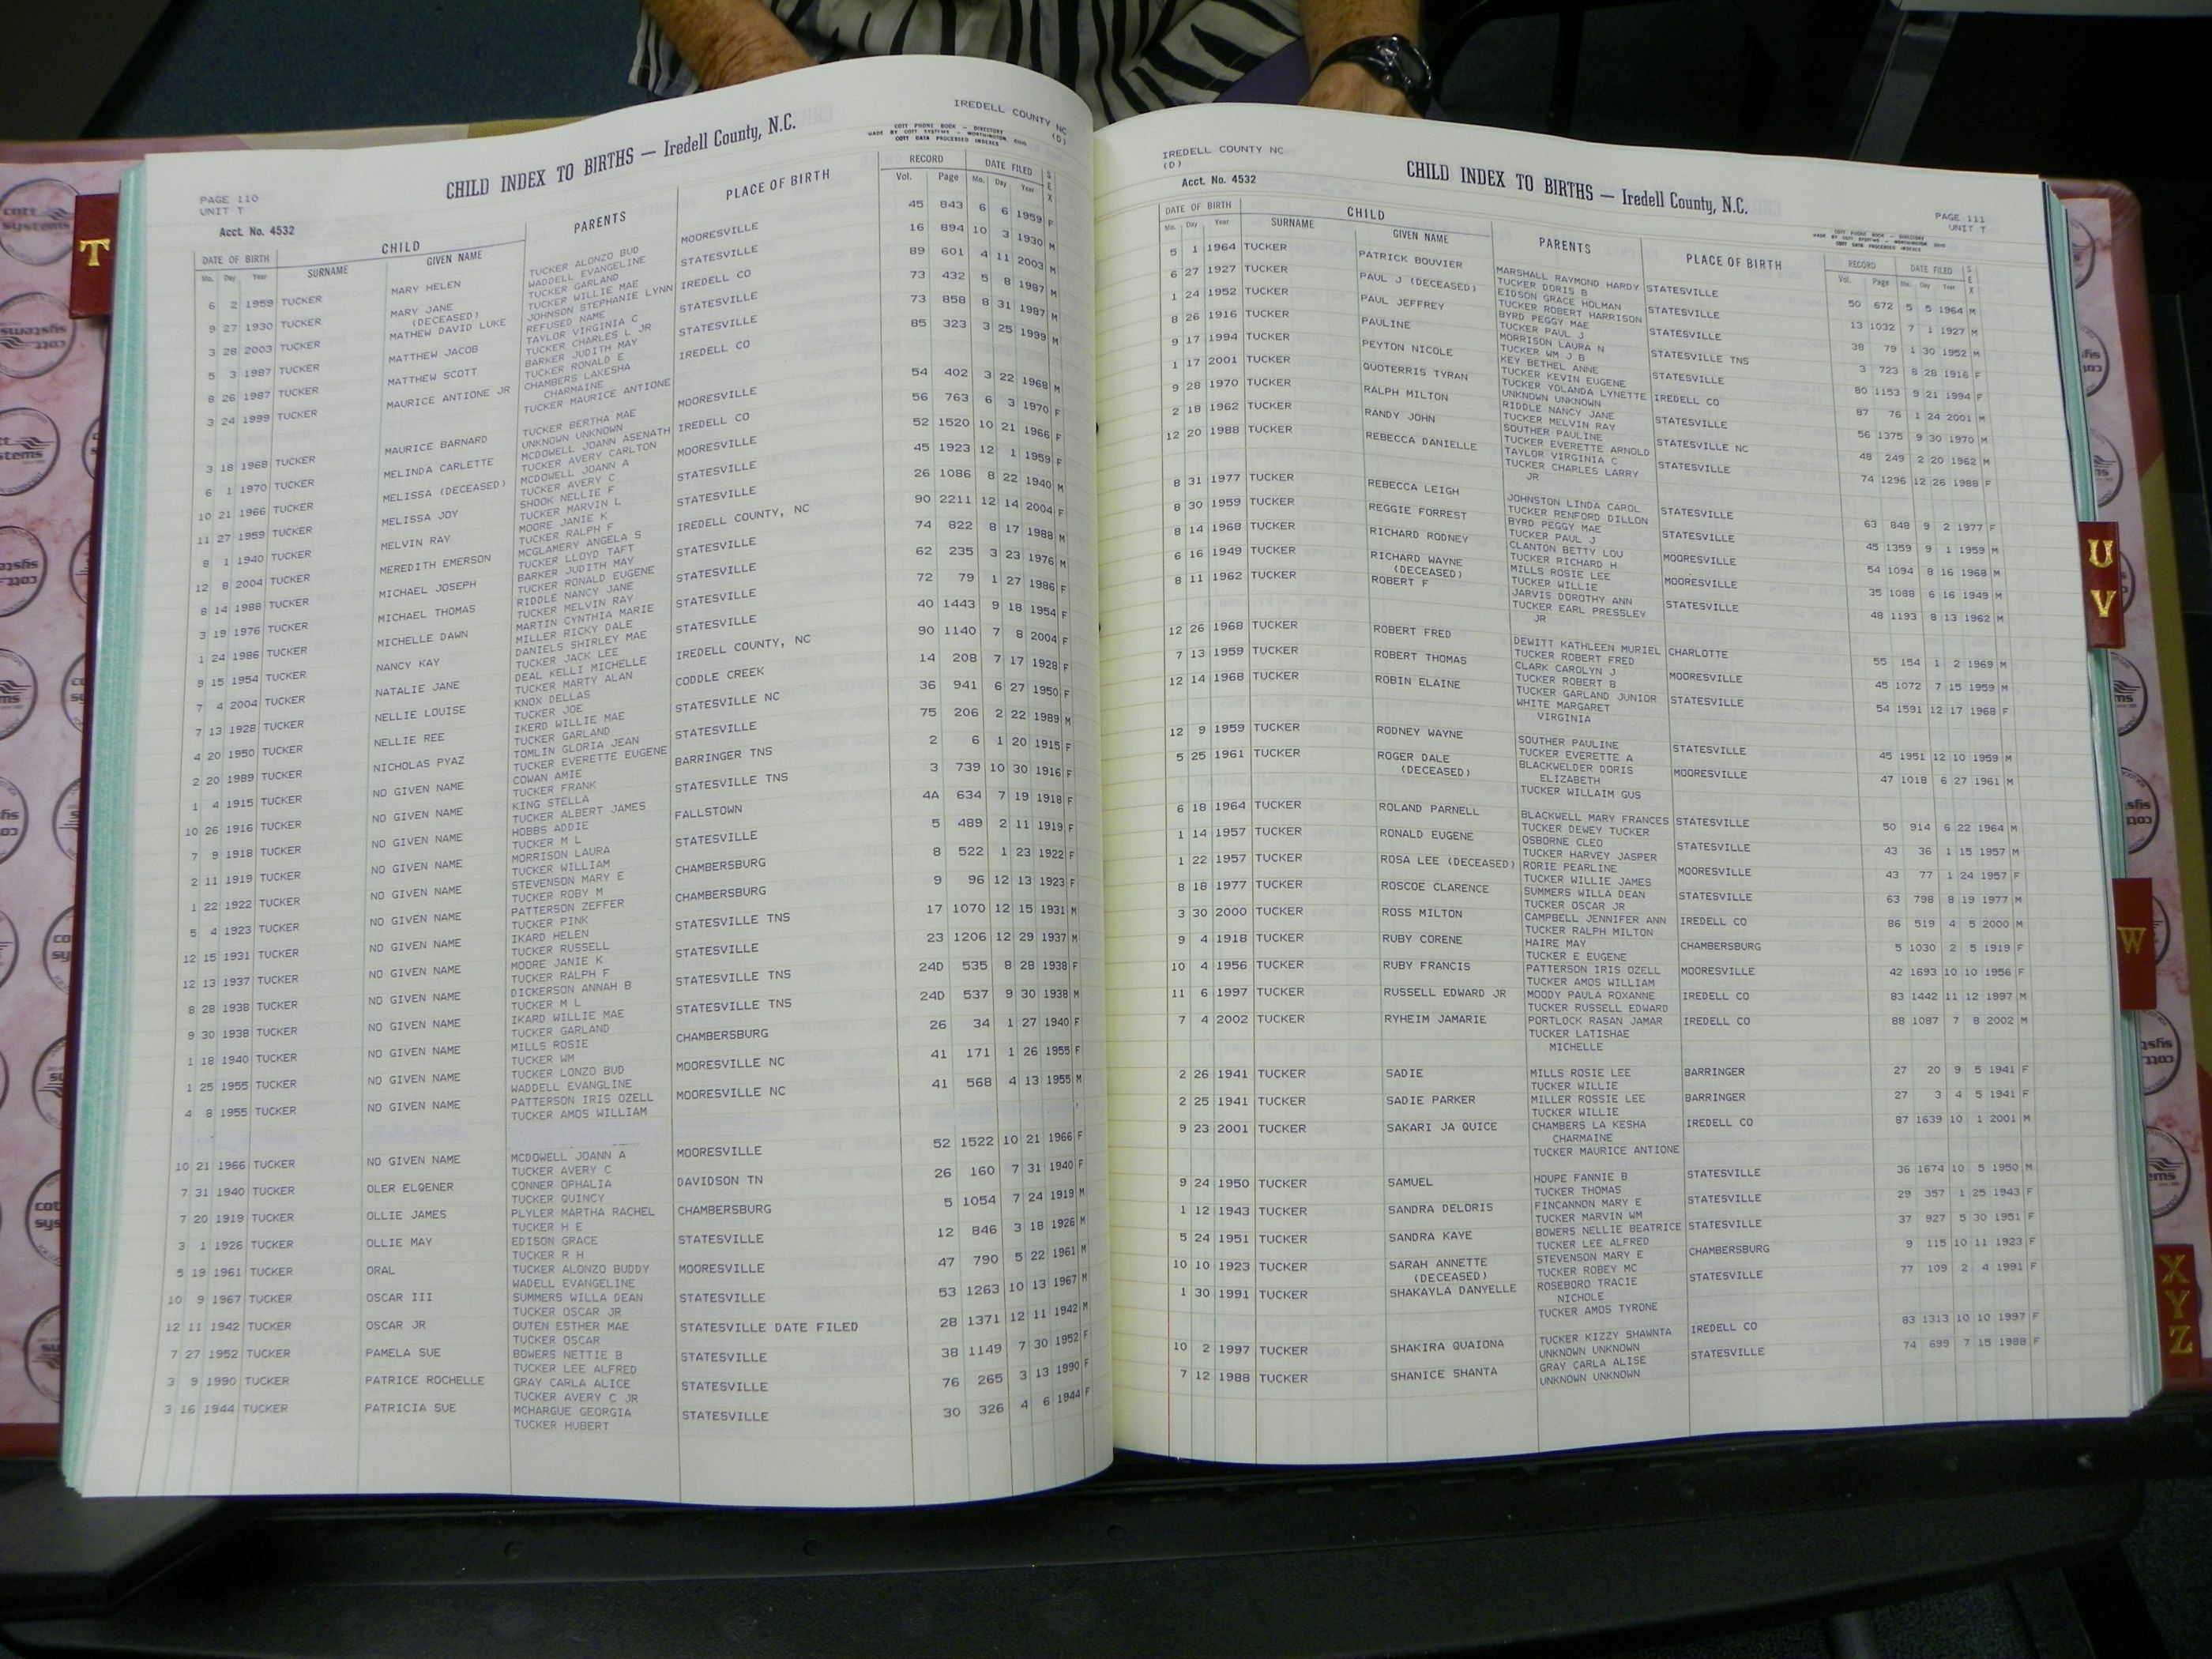 IREDELL COUNTY NC
(D)
COTT PHONE BOOK — DIRECTORY
MADE BY COTT SYSTEMS — WORTHINGTON OHIO
COTT DATA PROCESSED INDEXES
CHILD INDEX TO BIRTHS — Iredell County, N.C.
PAGE 110
UNIT T
Acct. No. 4532
DATE OF BIRTH CHILD PARENTS PLACE OF BIRTH RECORD DATE FILED SEX
Mo. Day Year SURNAME GIVEN NAME Vol. Page Mo. Day Year
6 2 1959 TUCKER MARY HELEN TUCKER ALONZO BUD MOORESVILLE 45 843 6 6 1959 F
WADDELL EVANGELINE
9 27 1930 TUCKER MARY JANE TUCKER GARLAND STATESVILLE 16 894 10 3 1930 M
(DECEASED) TUCKER WILLIE MAE
3 28 2003 TUCKER MATHEW DAVID LUKE JOHNSON STEPHANIE LYNN IREDELL CO 89 601 4 11 2003 M
REFUSED NAME
5 3 1987 TUCKER MATTHEW JACOB TAYLOR VIRGINIA C STATESVILLE 73 432 5 8 1987 M
TUCKER CHARLES L JR
8 26 1987 TUCKER MATTHEW SCOTT BARKER JUDITH MAY STATESVILLE 73 858 8 31 1987 M
TUCKER RONALD E
3 24 1999 TUCKER MAURICE ANTIONE JR CHAMBERS LAKESHA IREDELL CO 85 323 3 25 1999 M
CHARMAINE
TUCKER MAURICE ANTIONE
3 18 1968 TUCKER MAURICE BARNARD TUCKER BERTHA MAE MOORESVILLE 54 402 3 22 1968 M
UNKNOWN UNKNOWN
6 1 1970 TUCKER MELINDA CARLETTE MCDOWELL JOANN ASENATH IREDELL CO 56 763 6 3 1970 F
TUCKER AVERY CARLTON
10 21 1966 TUCKER MELISSA (DECEASED) MCDOWELL JOANN A MOORESVILLE 52 1520 10 21 1966 F
TUCKER AVERY C
11 27 1959 TUCKER MELISSA JOY SHOOK NELLIE F STATESVILLE 45 1923 12 1 1959 F
TUCKER MARVIN L
8 1 1940 TUCKER MELVIN RAY MOORE JANIE K STATESVILLE 26 1086 8 22 1940 M
TUCKER RALPH F
12 8 2004 TUCKER MEREDITH EMERSON MCGLAMERY ANGELA S IREDELL COUNTY, NC 90 2211 12 14 2004 F
TUCKER LLOYD TAFT
8 14 1988 TUCKER MICHAEL JOSEPH BARKER JUDITH MAY STATESVILLE 74 822 8 17 1988 M
TUCKER RONALD EUGENE
3 19 1976 TUCKER MICHAEL THOMAS RIDDLE NANCY JANE STATESVILLE 62 235 3 23 1976 M
TUCKER MELVIN RAY
1 24 1986 TUCKER MICHELLE DAWN MARTIN CYNTHIA MARIE STATESVILLE 72 79 1 27 1986 F
MILLER RICKY DALE
9 15 1954 TUCKER NANCY KAY DANIELS SHIRLEY MAE STATESVILLE 40 1443 9 18 1954 F
TUCKER JACK LEE
7 4 2004 TUCKER NATALIE JANE DEAL KELLI MICHELLE IREDELL COUNTY, NC 90 1140 7 8 2004 F
TUCKER MARTY ALAN
7 13 1928 TUCKER NELLIE LOUISE KNOX DELLAS CODDLE CREEK 14 208 7 17 1928 F
TUCKER JOE
4 20 1950 TUCKER NELLIE REE IKERD WILLIE MAE STATESVILLE NC 36 941 6 27 1950 F
TUCKER GARLAND
2 20 1989 TUCKER NICHOLAS PYAZ TOMLIN GLORIA JEAN STATESVILLE 75 206 2 22 1989 M
TUCKER EVERETTE EUGENE
1 4 1915 TUCKER NO GIVEN NAME COWAN AMIE BARRINGER TNS 2 6 1 20 1915 F
TUCKER FRANK
10 26 1916 TUCKER NO GIVEN NAME KING STELLA STATESVILLE TNS 3 739 10 30 1916 F
TUCKER ALBERT JAMES
7 9 1918 TUCKER NO GIVEN NAME HOBBS ADDIE FALLSTOWN 4A 634 7 19 1918 F
TUCKER M L
2 11 1919 TUCKER NO GIVEN NAME MORRISON LAURA STATESVILLE 5 489 2 11 1919 F
TUCKER WILLIAM
1 22 1922 TUCKER NO GIVEN NAME STEVENSON MARY E CHAMBERSBURG 8 522 1 23 1922 F
TUCKER ROBY M
5 4 1923 TUCKER NO GIVEN NAME PATTERSON ZEFFER CHAMBERSBURG 9 96 12 13 1923 F
TUCKER PINK
12 15 1931 TUCKER NO GIVEN NAME IKARD HELEN STATESVILLE TNS 17 1070 12 15 1931 M
TUCKER RUSSELL
12 13 1937 TUCKER NO GIVEN NAME MOORE JANIE K STATESVILLE 23 1206 12 29 1937 M
TUCKER RALPH F
8 28 1938 TUCKER NO GIVEN NAME DICKERSON ANNAH B STATESVILLE TNS 24D 535 8 28 1938 F
TUCKER M L
9 30 1938 TUCKER NO GIVEN NAME IKARD WILLIE MAE STATESVILLE TNS 24D 537 9 30 1938 M
TUCKER GARLAND
1 18 1940 TUCKER NO GIVEN NAME MILLS ROSIE CHAMBERSBURG 26 34 1 27 1940 F
TUCKER WM
1 25 1955 TUCKER NO GIVEN NAME TUCKER LONZO BUD MOORESVILLE NC 41 171 1 26 1955 F
WADDELL EVANGLINE
4 8 1955 TUCKER NO GIVEN NAME PATTERSON IRIS OZELL MOORESVILLE NC 41 568 4 13 1955 M
TUCKER AMOS WILLIAM
10 21 1966 TUCKER NO GIVEN NAME MCDOWELL JOANN A MOORESVILLE 52 1522 10 21 1966 F
TUCKER AVERY C
7 31 1940 TUCKER OLER ELGENER CONNER OPHALIA DAVIDSON TN 26 160 7 31 1940 F
TUCKER QUINCY
7 20 1919 TUCKER OLLIE JAMES PLYLER MARTHA RACHEL CHAMBERSBURG 5 1054 7 24 1919 M
TUCKER H E
3 1 1926 TUCKER OLLIE MAY EDISON GRACE STATESVILLE 12 846 3 18 1926 M
TUCKER R H
5 19 1961 TUCKER ORAL TUCKER ALONZO BUDDY MOORESVILLE 47 790 5 22 1961 M
WADELL EVANGELINE
10 9 1967 TUCKER OSCAR III SUMMERS WILLA DEAN STATESVILLE 53 1263 10 13 1967 M
TUCKER OSCAR JR
12 11 1942 TUCKER OSCAR JR OUTEN ESTHER MAE STATESVILLE DATE FILED 28 1371 12 11 1942 M
TUCKER OSCAR
7 27 1952 TUCKER PAMELA SUE BOWERS NETTIE B STATESVILLE 38 1149 7 30 1952 F
TUCKER LEE ALFRED
3 9 1990 TUCKER PATRICE ROCHELLE GRAY CARLA ALICE STATESVILLE 76 265 3 13 1990 F
TUCKER AVERY C JR
3 16 1944 TUCKER PATRICIA SUE MCHARGUE GEORGIA STATESVILLE 30 326 4 6 1944 F
TUCKER HUBERT
IREDELL COUNTY NC
(D)
Acct. No. 4532
CHILD INDEX TO BIRTHS — Iredell County, N.C.
PAGE 111
UNIT T
COTT PHONE BOOK — DIRECTORY
MADE BY COTT SYSTEMS — WORTHINGTON OHIO
COTT DATA PROCESSED INDEXES
DATE OF BIRTH CHILD PARENTS PLACE OF BIRTH RECORD DATE FILED SEX
Mo. Day Year SURNAME GIVEN NAME Vol. Page Mo. Day Year
5 1 1964 TUCKER PATRICK BOUVIER MARSHALL RAYMOND HARDY STATESVILLE 50 672 5 5 1964 M
TUCKER DORIS B
6 27 1927 TUCKER PAUL J (DECEASED) EIDSON GRACE HOLMAN STATESVILLE 13 1032 7 1 1927 M
TUCKER ROBERT HARRISON
1 24 1952 TUCKER PAUL JEFFREY BYRD PEGGY MAE STATESVILLE TNS 38 79 1 30 1952 M
TUCKER PAUL J
8 26 1916 TUCKER PAULINE MORRISON LAURA N STATESVILLE 3 723 8 28 1916 F
TUCKER WM J B
9 17 1994 TUCKER PEYTON NICOLE KEY BETHEL ANNE IREDELL CO 80 1153 9 21 1994 F
TUCKER KEVIN EUGENE
1 17 2001 TUCKER QUOTERRIS TYRAN TUCKER YOLANDA LYNETTE STATESVILLE 87 76 1 24 2001 M
UNKNOWN UNKNOWN
9 28 1970 TUCKER RALPH MILTON RIDDLE NANCY JANE STATESVILLE NC 56 1375 9 30 1970 M
TUCKER MELVIN RAY
2 18 1962 TUCKER RANDY JOHN SOUTHER PAULINE STATESVILLE 48 249 2 20 1962 M
TUCKER EVERETTE ARNOLD
12 20 1988 TUCKER REBECCA DANIELLE TAYLOR VIRGINIA C STATESVILLE 74 1296 12 26 1988 F
TUCKER CHARLES LARRY
JR
8 31 1977 TUCKER REBECCA LEIGH JOHNSTON LINDA CAROL STATESVILLE 63 848 9 2 1977 F
TUCKER RENFORD DILLON
8 30 1959 TUCKER REGGIE FORREST BYRD PEGGY MAE STATESVILLE 45 1359 9 1 1959 M
TUCKER PAUL J
8 14 1968 TUCKER RICHARD RODNEY CLANTON BETTY LOU MOORESVILLE 54 1094 8 16 1968 M
TUCKER RICHARD H
6 16 1949 TUCKER RICHARD WAYNE MILLS ROSIE LEE MOORESVILLE 35 1088 6 16 1949 M
(DECEASED) TUCKER WILLIE
8 11 1962 TUCKER ROBERT F JARVIS DOROTHY ANN STATESVILLE 48 1193 8 13 1962 M
TUCKER EARL PRESSLEY
JR
12 26 1968 TUCKER ROBERT FRED DEWITT KATHLEEN MURIEL CHARLOTTE 55 154 1 2 1969 M
TUCKER ROBERT FRED
7 13 1959 TUCKER ROBERT THOMAS CLARK CAROLYN J MOORESVILLE 45 1072 7 15 1959 M
TUCKER ROBERT B
12 14 1968 TUCKER ROBIN ELAINE TUCKER GARLAND JUNIOR STATESVILLE 54 1591 12 17 1968 F
WHITE MARGARET
VIRGINIA
12 9 1959 TUCKER RODNEY WAYNE SOUTHER PAULINE STATESVILLE 45 1951 12 10 1959 M
TUCKER EVERETTE A
5 25 1961 TUCKER ROGER DALE BLACKWELDER DORIS MOORESVILLE 47 1018 6 27 1961 M
(DECEASED) ELIZABETH
TUCKER WILLAIM GUS
6 18 1964 TUCKER ROLAND PARNELL BLACKWELL MARY FRANCES STATESVILLE 50 914 6 22 1964 M
TUCKER DEWEY TUCKER
1 14 1957 TUCKER RONALD EUGENE OSBORNE CLEO STATESVILLE 43 36 1 15 1957 M
TUCKER HARVEY JASPER
1 22 1957 TUCKER ROSA LEE (DECEASED) RORIE PEARLINE MOORESVILLE 43 77 1 24 1957 F
TUCKER WILLIE JAMES
8 18 1977 TUCKER ROSCOE CLARENCE SUMMERS WILLA DEAN STATESVILLE 63 798 8 19 1977 M
TUCKER OSCAR JR
3 30 2000 TUCKER ROSS MILTON CAMPBELL JENNIFER ANN IREDELL CO 86 519 4 5 2000 M
TUCKER RALPH MILTON
9 4 1918 TUCKER RUBY CORENE HAIRE MAY CHAMBERSBURG 5 1030 2 5 1919 F
TUCKER E EUGENE
10 4 1956 TUCKER RUBY FRANCIS PATTERSON IRIS OZELL MOORESVILLE 42 1693 10 10 1956 F
TUCKER AMOS WILLIAM
11 6 1997 TUCKER RUSSELL EDWARD JR MOODY PAULA ROXANNE IREDELL CO 83 1442 11 12 1997 M
TUCKER RUSSELL EDWARD
7 4 2002 TUCKER RYHEIM JAMARIE PORTLOCK RASAN JAMAR IREDELL CO 88 1087 7 8 2002 M
TUCKER LATISHAE
MICHELLE
2 26 1941 TUCKER SADIE MILLS ROSIE LEE BARRINGER 27 20 9 5 1941 F
TUCKER WILLIE
2 25 1941 TUCKER SADIE PARKER MILLER ROSSIE LEE BARRINGER 27 3 4 5 1941 F
TUCKER WILLIE
9 23 2001 TUCKER SAKARI JA QUICE CHAMBERS LA KESHA IREDELL CO 87 1639 10 1 2001 M
CHARMAINE
TUCKER MAURICE ANTIONE
9 24 1950 TUCKER SAMUEL HOUPE FANNIE B STATESVILLE 36 1674 10 5 1950 M
TUCKER THOMAS
1 12 1943 TUCKER SANDRA DELORIS FINCANNON MARY E STATESVILLE 29 357 1 25 1943 F
TUCKER MARVIN WM
5 24 1951 TUCKER SANDRA KAYE BOWERS NELLIE BEATRICE STATESVILLE 37 927 5 30 1951 F
TUCKER LEE ALFRED
10 10 1923 TUCKER SARAH ANNETTE STEVENSON MARY E CHAMBERSBURG 9 115 10 11 1923 F
(DECEASED) TUCKER ROBEY MC
1 30 1991 TUCKER SHAKAYLA DANYELLE ROSEBORO TRACIE STATESVILLE 77 109 2 4 1991 F
NICHOLE
TUCKER AMOS TYRONE
10 2 1997 TUCKER SHAKIRA QUAIONA TUCKER KIZZY SHAWNTA IREDELL CO 83 1313 10 10 1997 F
UNKNOWN UNKNOWN
7 12 1988 TUCKER SHANICE SHANTA GRAY CARLA ALISE STATESVILLE 74 699 7 15 1988 F
UNKNOWN UNKNOWN
T
U
V
W
X
Y
Z
cott
systems